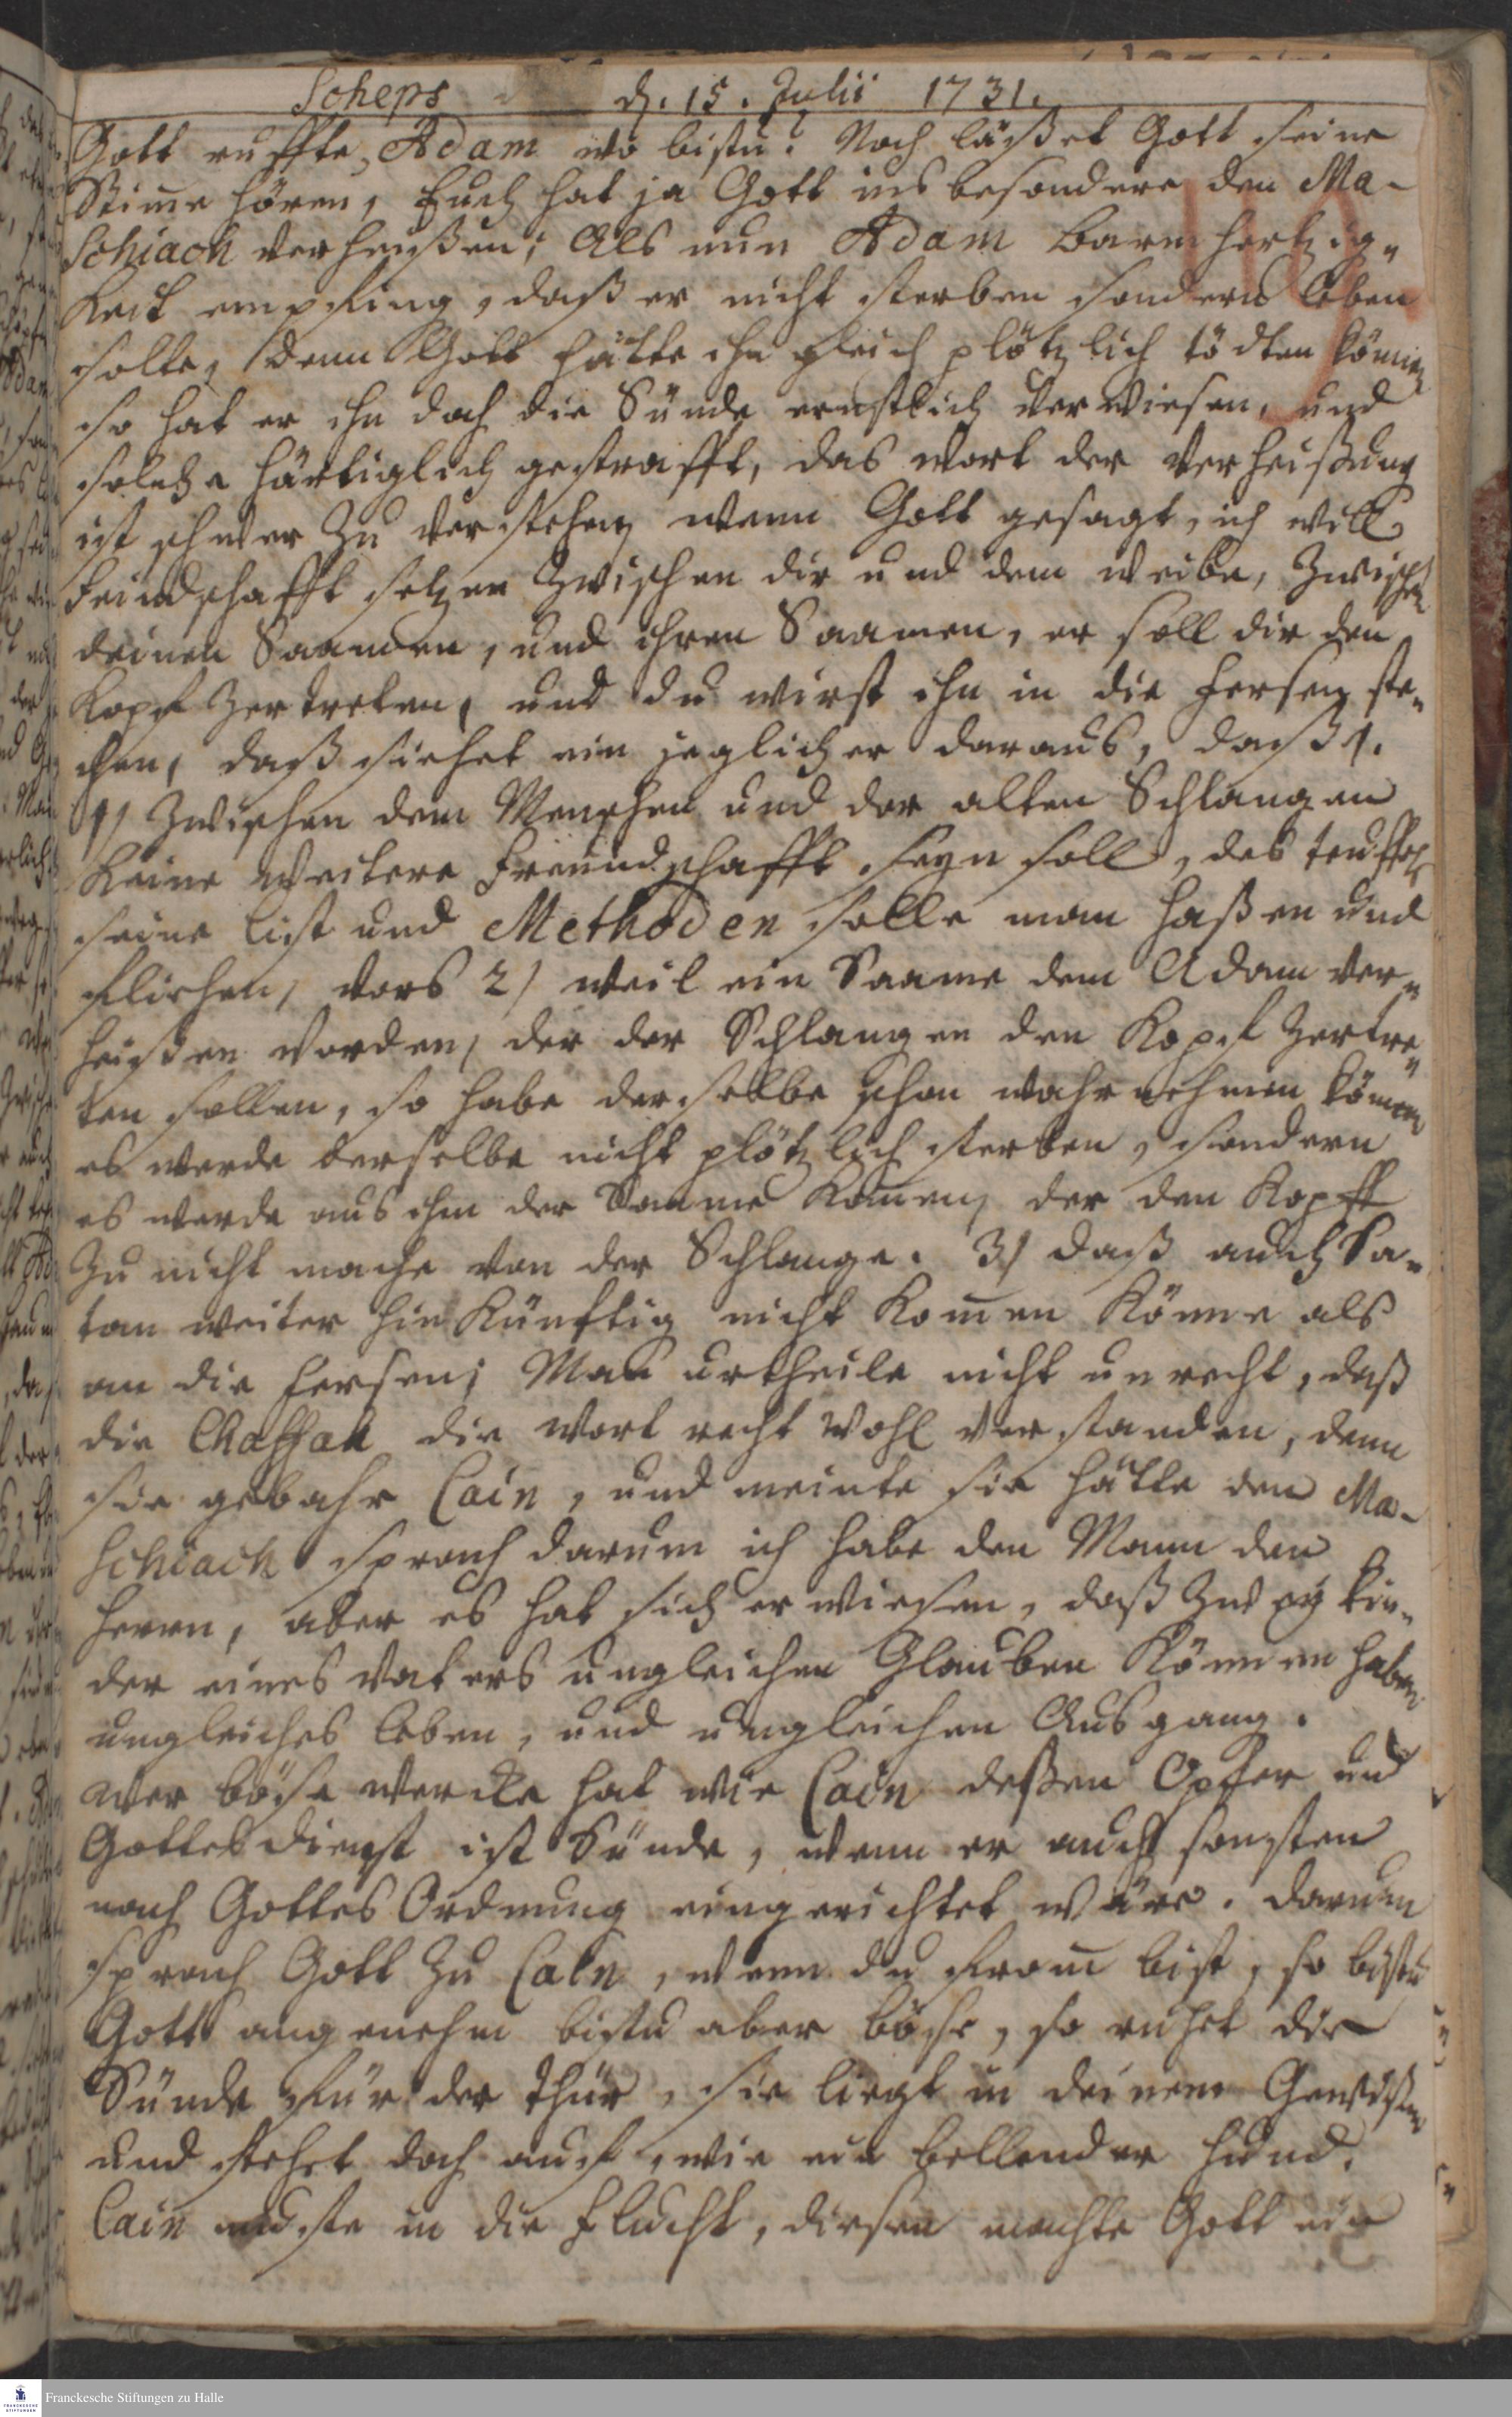 Scheps d. 15. Julii 1731.
Gott ruffte, Adam wo bistu? Noch läßet Gott seine
Stime hören, Euch hat ja Gott ins besondere den Ma-
schiach verheißen; Als nun Adam Barmhertzig-
keit empfing, daß er nicht sterben sondern leben
solte, denn Gott hätte ihn gleich plötzlich tödten können
so hat er ihn doch die Sünde ernstlich verwiesen, und
solche härtiglich gestrafft, das wort der Verheißung
ist schwer zu verstehen wenn Gott gesagt, ich will
Feindschafft setzen zwischen dir und dem weibe, zwischen
deinen Saamen, und ihren Saamen, er soll dir den
Kopf zertreten, und du wirst ihn in die Fersen ste-
chen, daß siehet ein jeglicher daraus, daß 1.
1) zwischen dem Menschen und der alten Schlangen
keine weitere Freundschafft seyn soll, des teuffels
seine list und Methoden solle man haßen und
fliehen, vors 2) weil ein Saame dem Adam ver-
heißen worden, der der Schlangen den Kopf zertre-
ten sollen, so habe derselbe schon wahrnehmen können
es werde derselbe nicht plötzlich sterben, sondern
es werde aus ihm der Saame komen, der den Kopff
zu nicht mache von der Schlange. 3) daß auch Sa-
tan weiter hin künftig nicht komen könne als
an die Fersen; Man urtheile nicht unrecht, daß
die Chaffah die Wort recht wohl verstanden, denn
sie gebahr Cain, und meinte sie hätte den Ma-
schiach sprach darum ich habe den Mann den
Herrn, aber es hat sich erwiesen, daß zwey Kin-
der eines Vaters ungleichen Glauben können haben
ungleiches leben, und ungleichen Ausgang.
Wer böse wercke hat wie Cain deßen Opfer und
Gottesdienst ist Sünde, wenn er auch sonsten
nach Gottes Ordnung eingerichtet wäre. Darum
sprach Gott zu Cain, wenn du from bist, so bistu
Gott angenehm bistu aber böse, so ruhet die
Sünde für der thür, sie liegt in deinem Gewißen
und stehet doch auf, wie ein bellender hund.
Cain muste in die Flucht, diesen machte Gott ein
Franckesche Stiftungen zu Halle